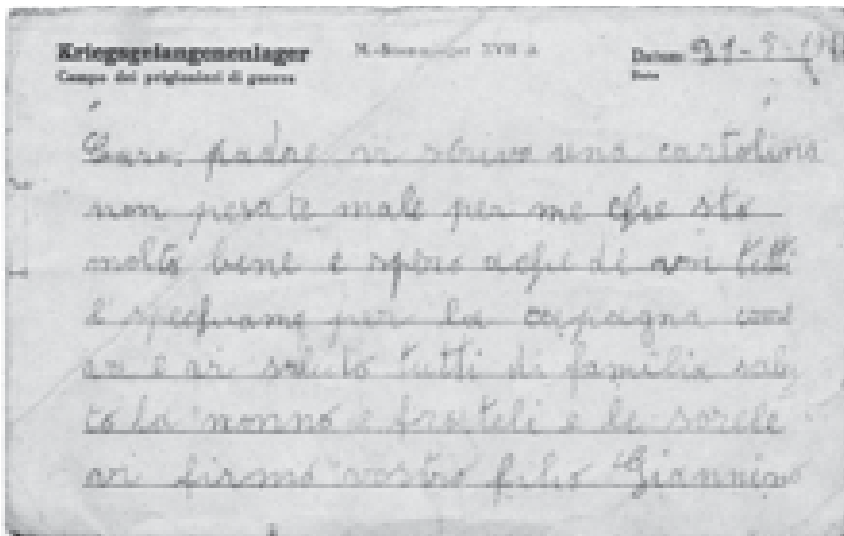 Kriegsgefangenenlager
Campo dei prigionieri di guerra
XVII A
Datum: 21-
Data
Caro padre vi scrivo una cartolina
non pesate male per me che sto
molto bene e spero achi di voi tutti
e per la capagna
vi saluto tutti di familia salu
to la nonno e frateli e le sorele
vi firmo vostro filio Giannino